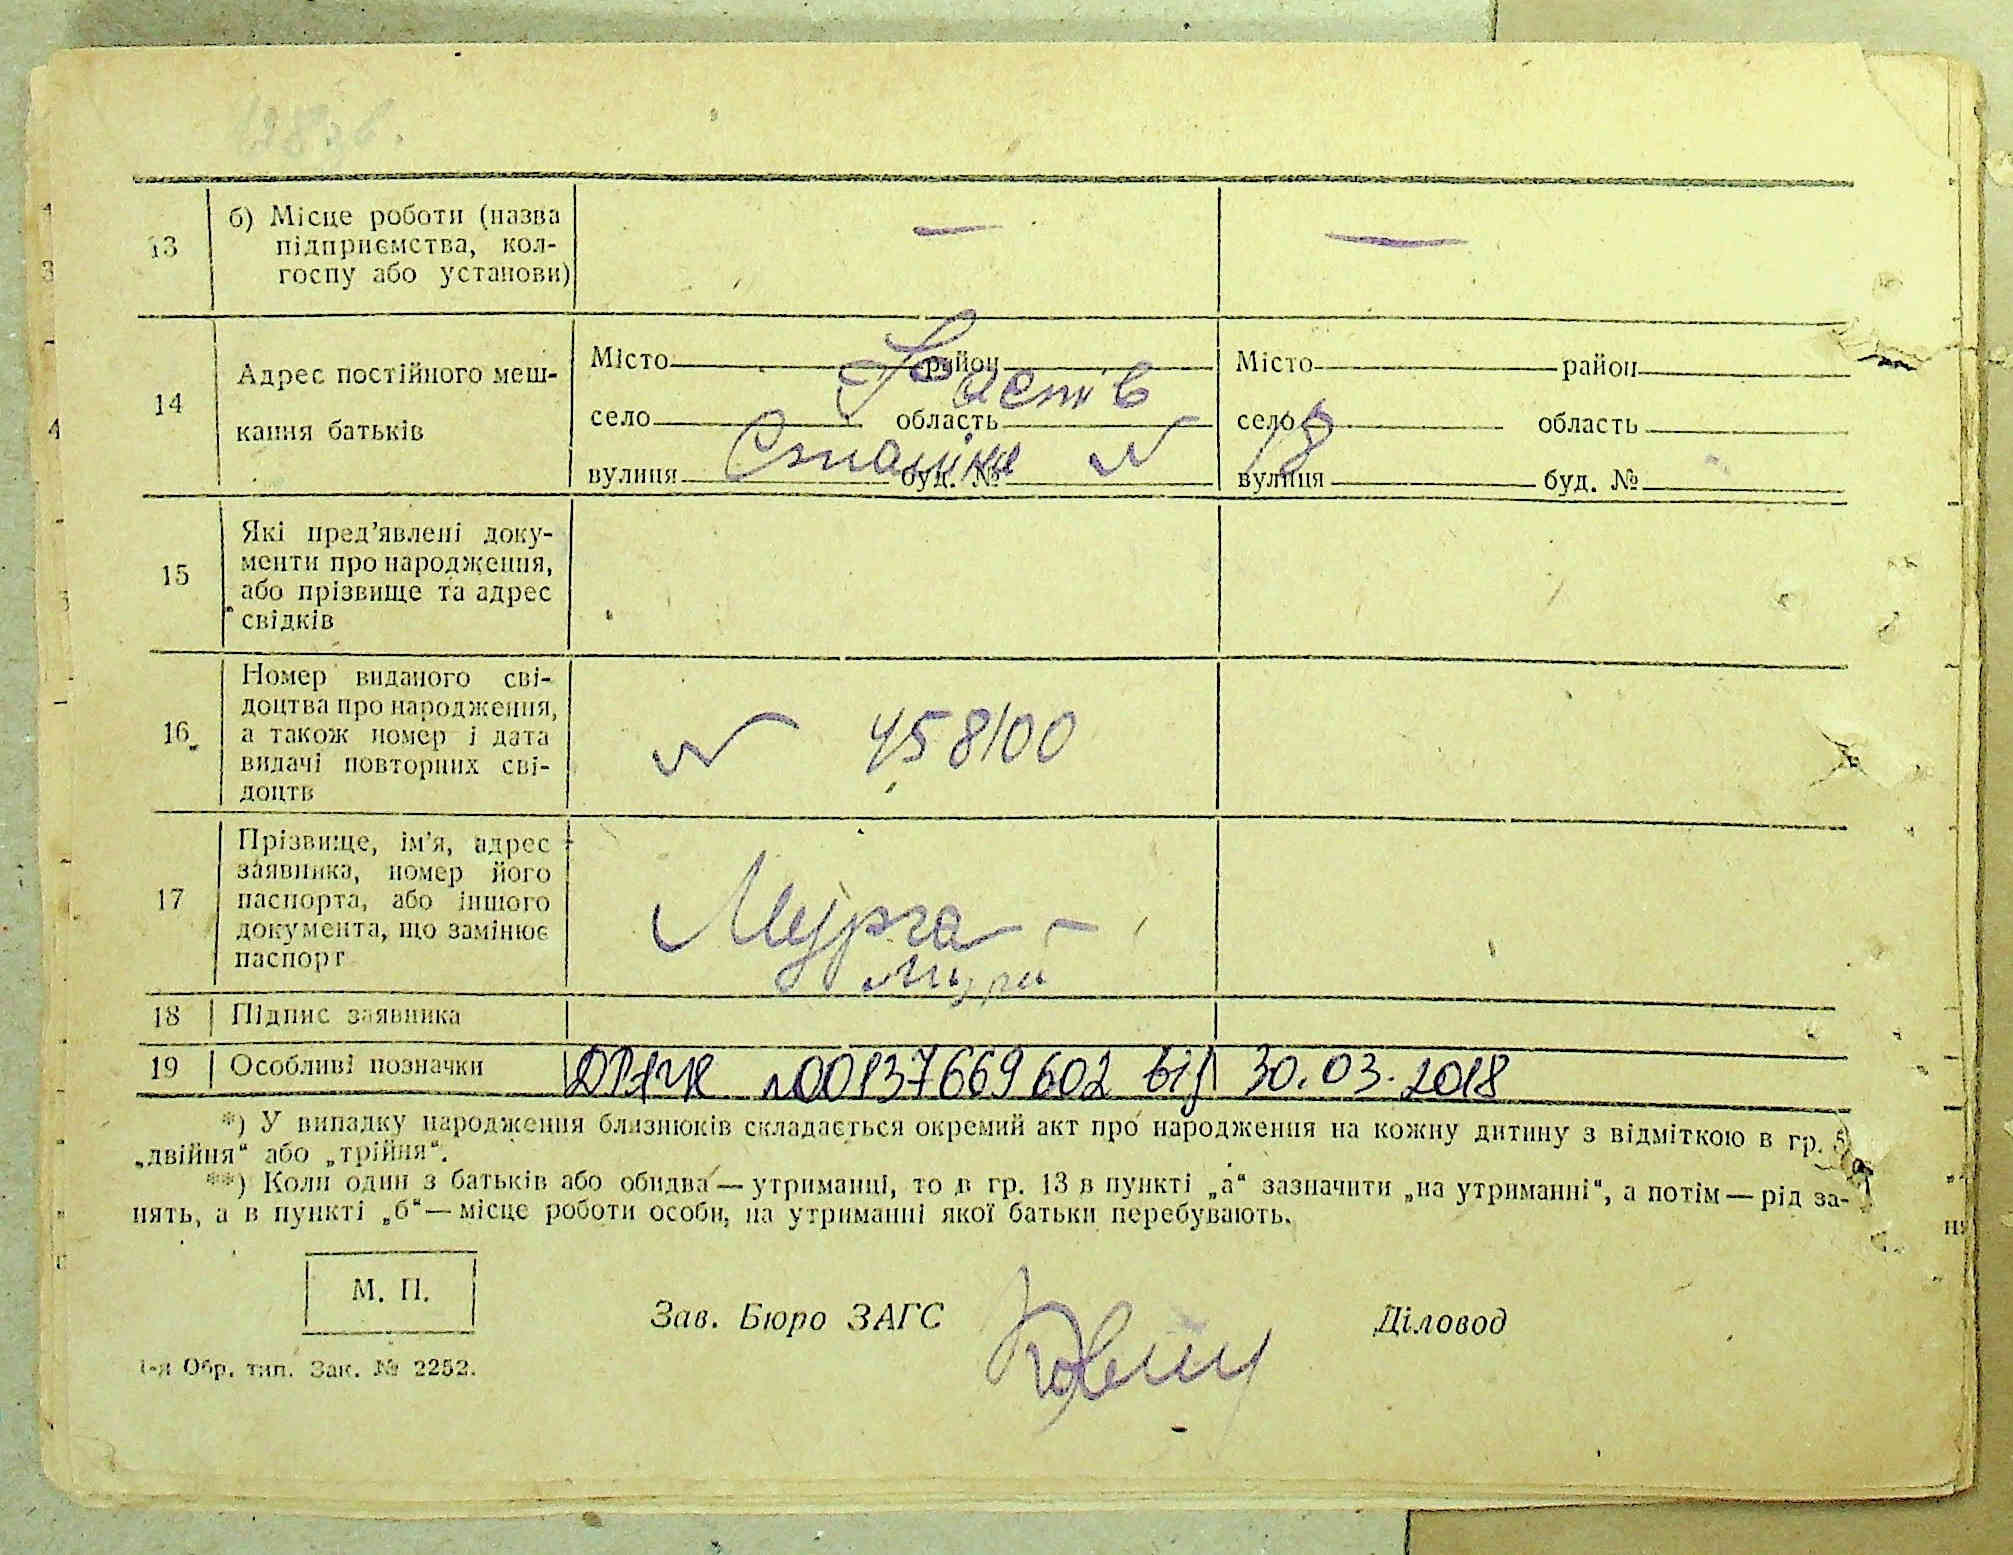 13
б) Місце роботи (назва
підприємства, кол-
госпу або установи)
—
—
14
Адрес постійного меш-
кання батьків
Місто район
Фастів
село область
Сталіна № 18
вулиця буд. №
Місто район
село область
вулиця буд. №
15
Які пред’явлені доку-
менти про народження,
або прізвище та адрес
свідків
16
Номер виданого сві-
доцтва про народження,
а також номер і дата
видачі повторних сві-
доцтв
№ 458100
17
Прізвище, ім’я, адрес
заявника, номер його
паспорта, або іншого
документа, що замінює
паспорт
Мурга —
18
Підпис заявника
19
Особливі позначки
ДРАЦС №00137669602 від 30.03.2018
*) У випадку народження близнюків складається окремий акт про народження на кожну дитину з відміткою в гр. 5
„двійня“ або „трійня“.
**) Коли один з батьків або обидва — утриманці, то в гр. 13 в пункті „а“ зазначити „на утриманні“, а потім — рід за-
нять, а в пункті „б“ — місце роботи особи, на утриманні якої батьки перебувають.
М. П.
Зав. Бюро ЗАГС
Діловод
1-я Обр. тип. Зак. № 2252.